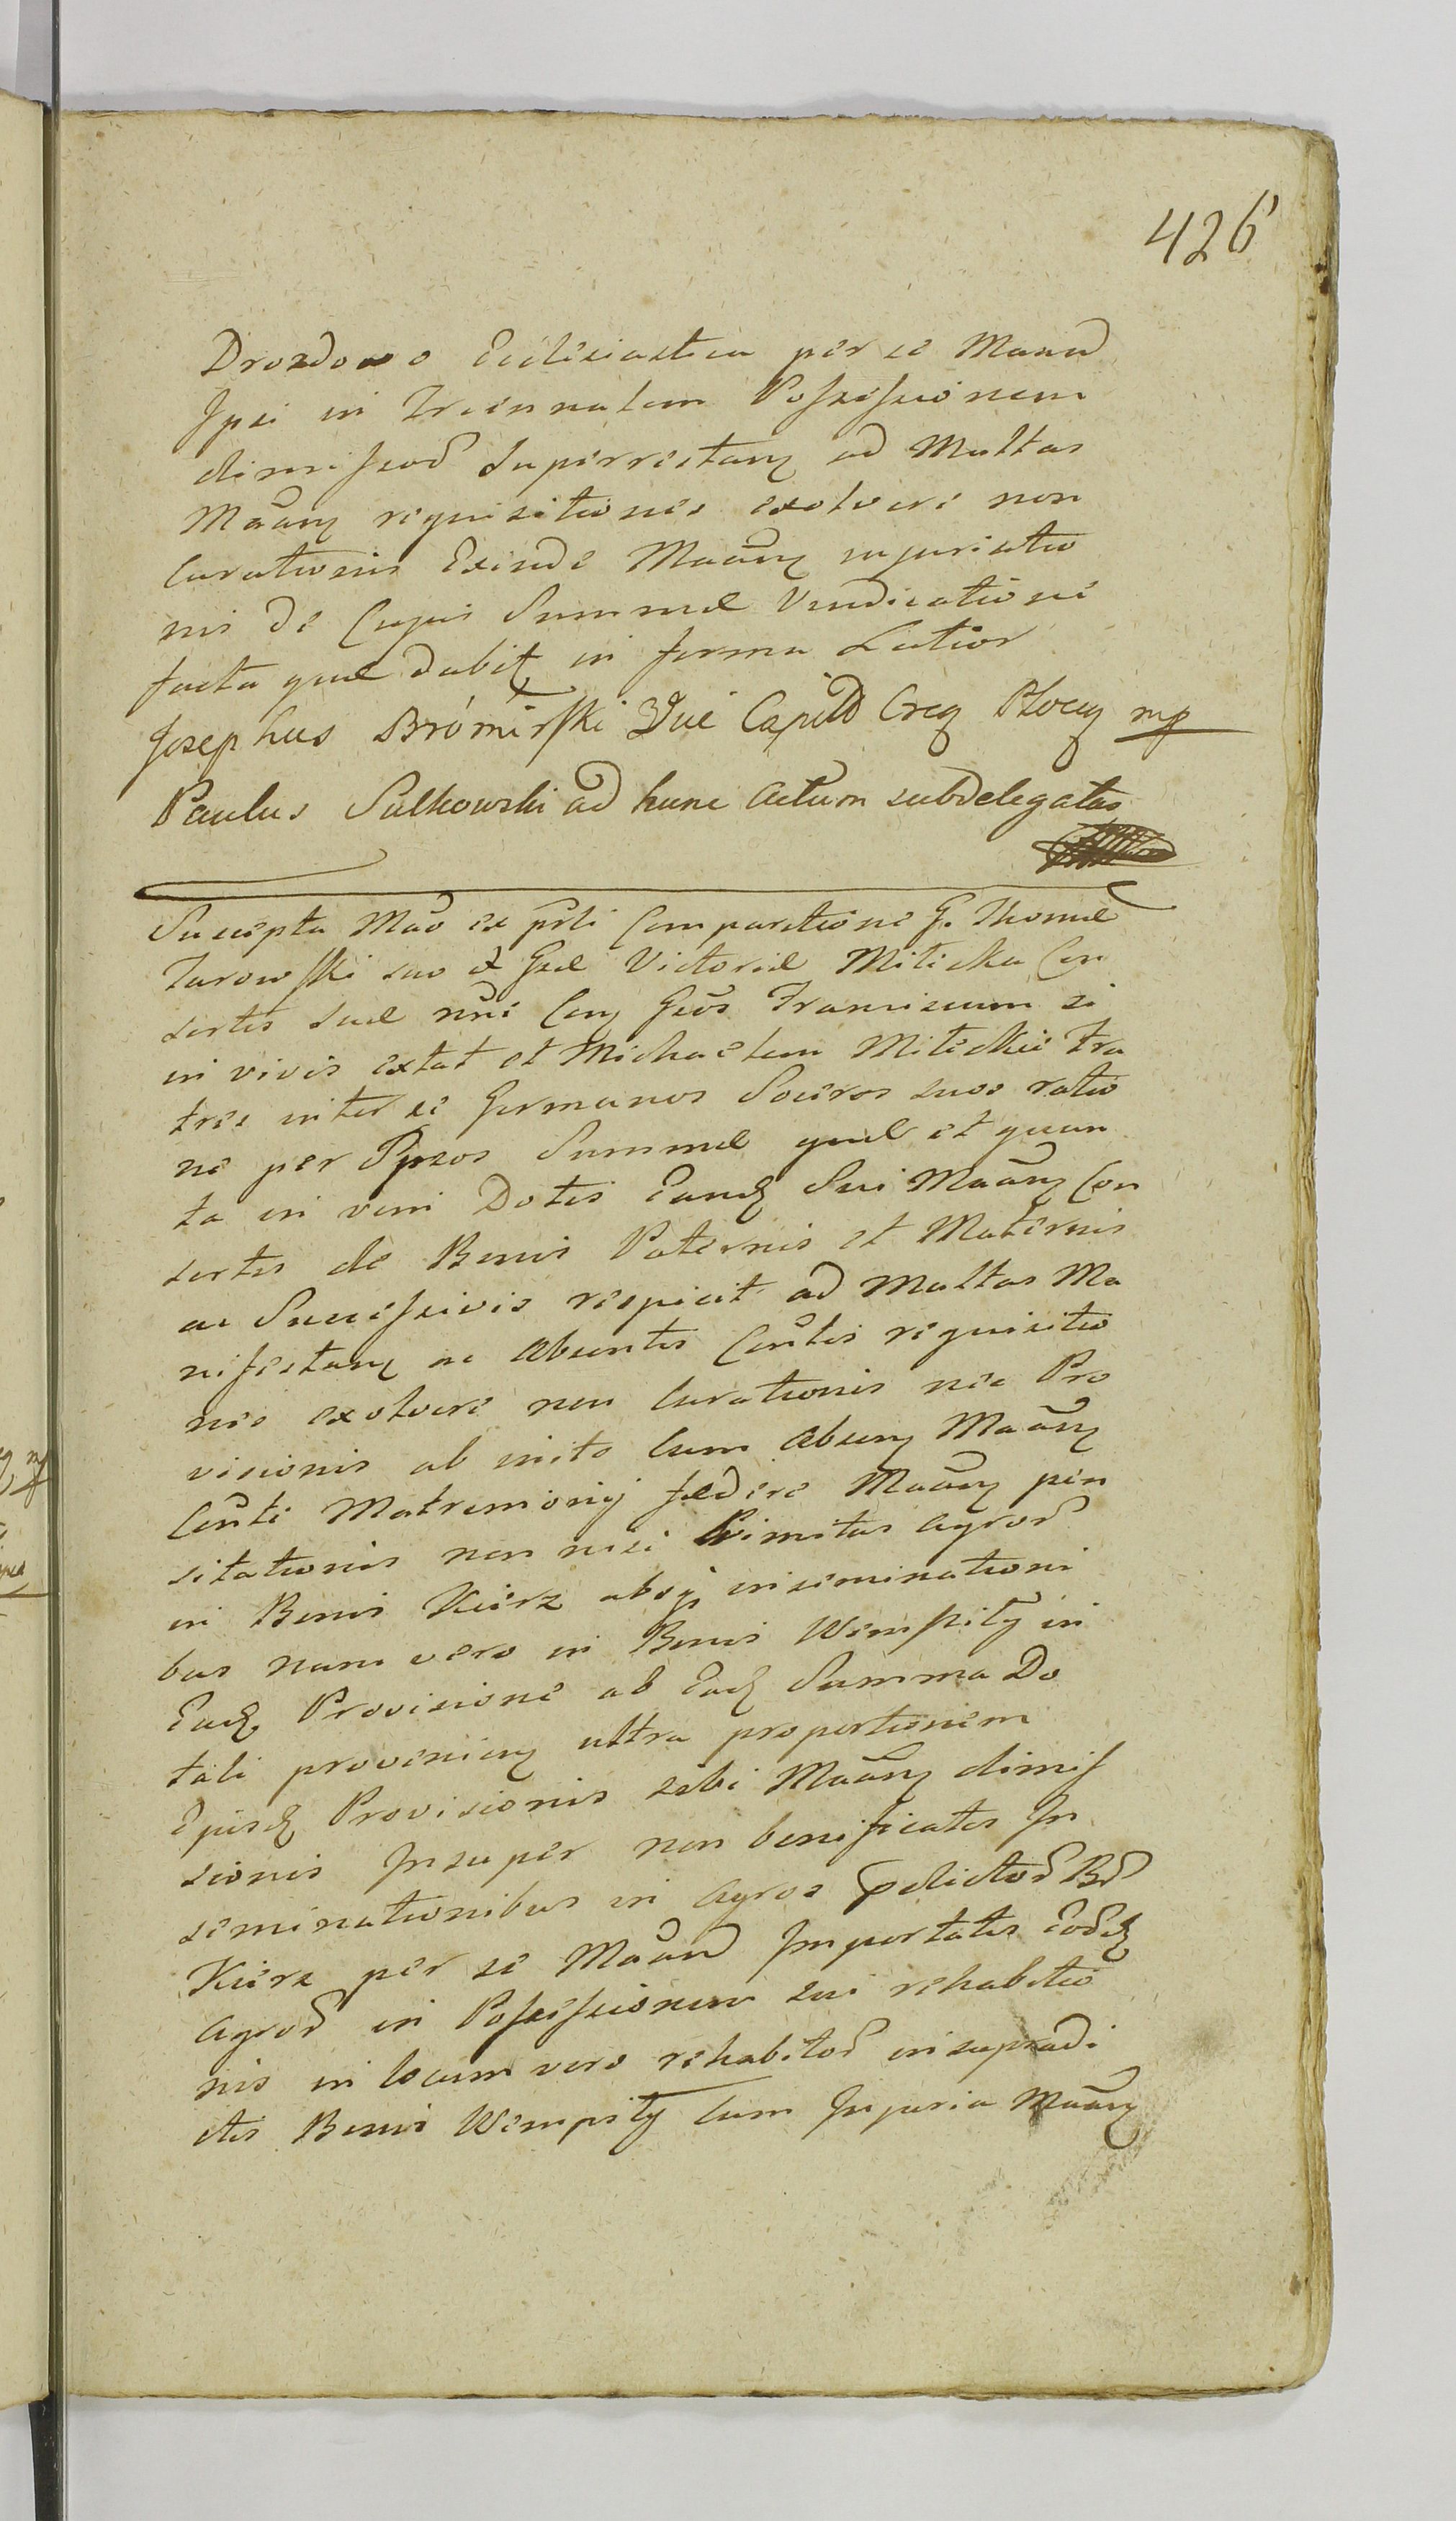 426
Drozdowo Ecclesiastica per se Mand
Ipsi in Triennalem Possessionem
dimissor Superrectanz ad Multas
Maanz requisitiones exolvere non
Curationis Exinde Maanz injuriatio
nis de Cujus Summæ Vindicatione
facta quæ dabit in forma Latior
Josephus Bromirski Vice Capit Creg Plocg mp
Paulus Sulkowski ad hunc Actum subdelegatus
Suscepta Mao ex psti Comparitione G. Thomæ
Turowski suo et Gsæ Victoriæ Milicka Con
sortis suæ nnē Cenz Geos Franciscum si
in vivis extat et Michaelem Milickie Fra
tres inter se Germanos Soceros suos ratio
ne per Ipsos Summæ quæ et quan
ta in vim Dotis Eand Sui Maanz Con
sortis de Bonis Paternis et Maternis
ac Successivis respicit ad Multas Ma
nifestanz ac Absentis Contis requisitio
nes exolvere non Curationis nec Pro
visionis ab inito Cum Absenz Maanz
Conti Matrimonij fædere Maanz pen
sitationis non nisi Limitus agror
in Bonis Kierz absq inseminationi
bus nunc vero in Bonis Wempity in
Ead Provisione ab Ead Summa Do
tali provenienz ultra proportionem
Ejusd Provisionis sibi Maanz dimis
sionis Insuper non bonificatis In
seminationibus in agros pdictor Br
Kierz per se Maand Importatis Eord
agror in Possessionem sui rehabitio
nis in locum vero rehabitor in supradi
ctis Bonis Wempity Cum Injuria Maanz